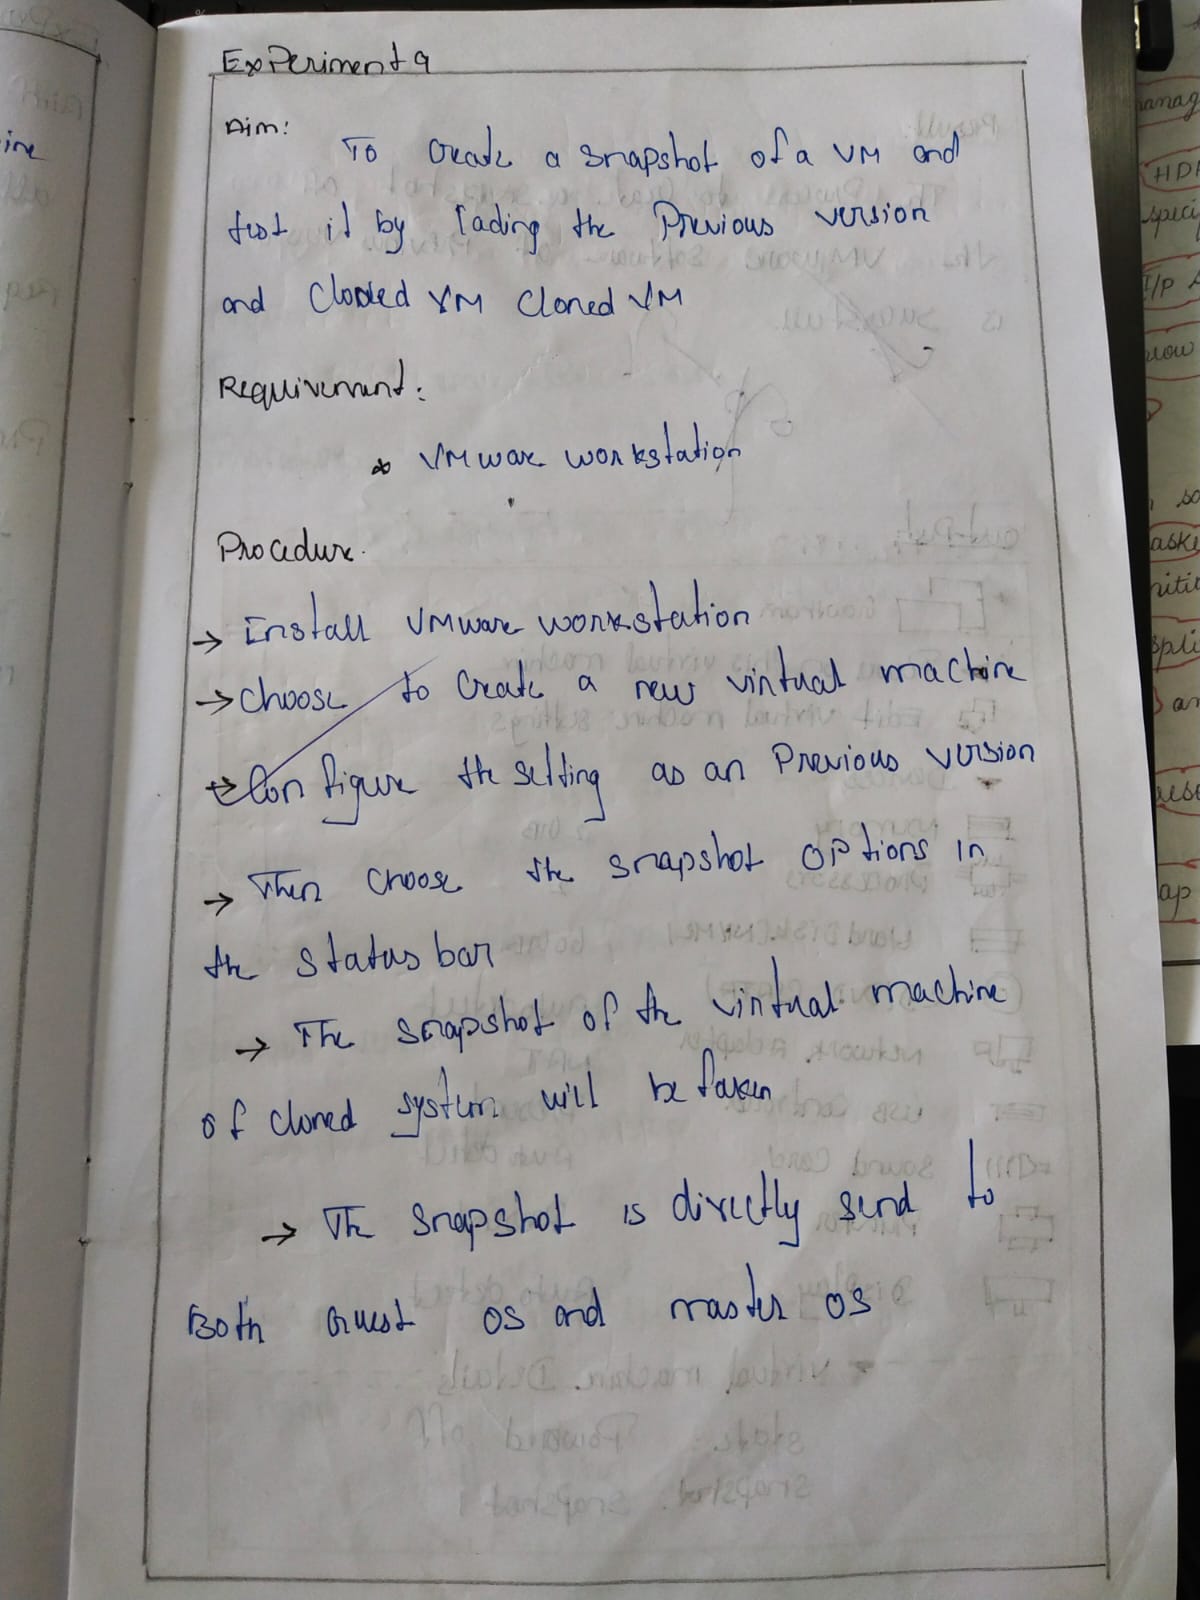 Experiment 9
Aim:
To Create a snapshot of a VM and
test it by lading the Previous version
and Cloned VM Cloned VM
Requirement:
* VMware workstation
Procedure.
→ Install VMware workstation
→ Choose to Create a new virtual machine
→ Configure the setting as an Previous version
→ Then choose the snapshot options in
the status bar
→ The snapshot of the virtual machine
of cloned system will be taken
→ The snapshot is directly send to
Both Guest OS and master OS
ine
manag
speci
I/P A
now
aske
spli
an
ap